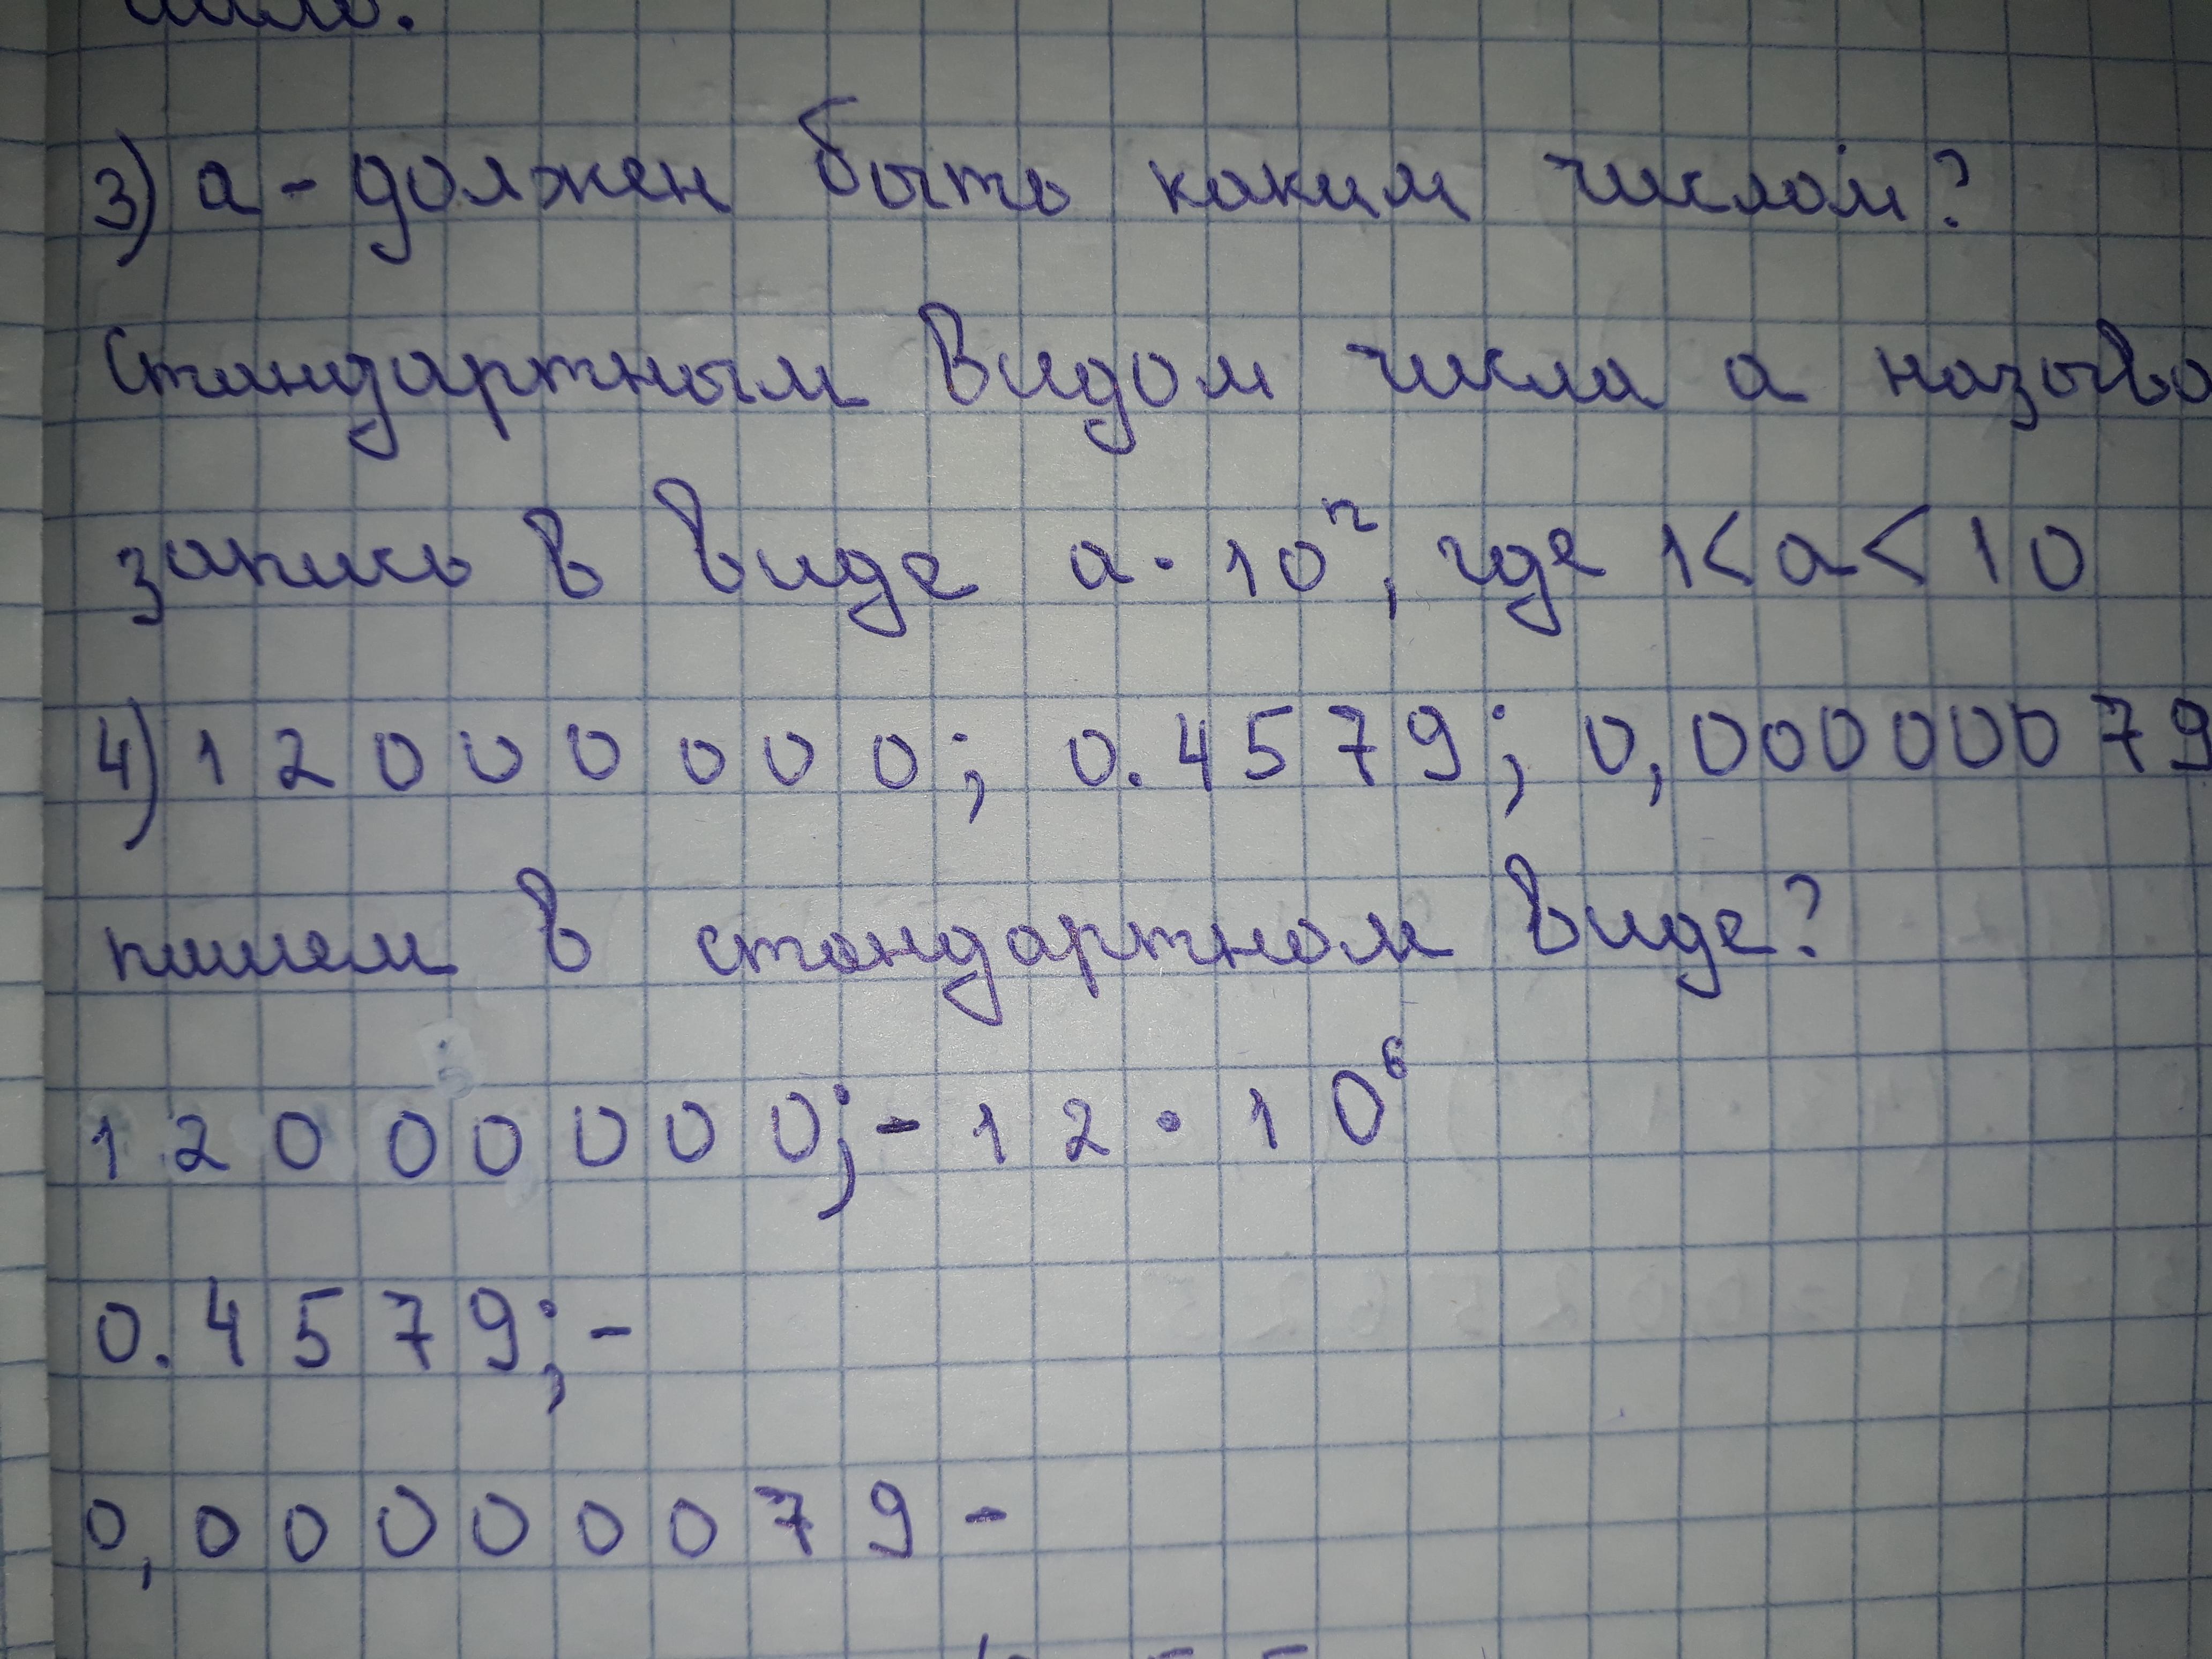 3) а - должен быть каким числом?
Стандартным видом числа а называ
запись в виде а · 10ⁿ, где 1<а<10
4) 12000000; 0.4579; 0,00000079
пишем в стандартном виде?
12000000; - 12 · 10⁶
0.4579; -
0,00000079 -